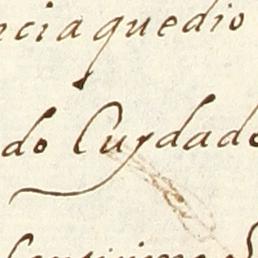 ncia que dio
do Cuydado